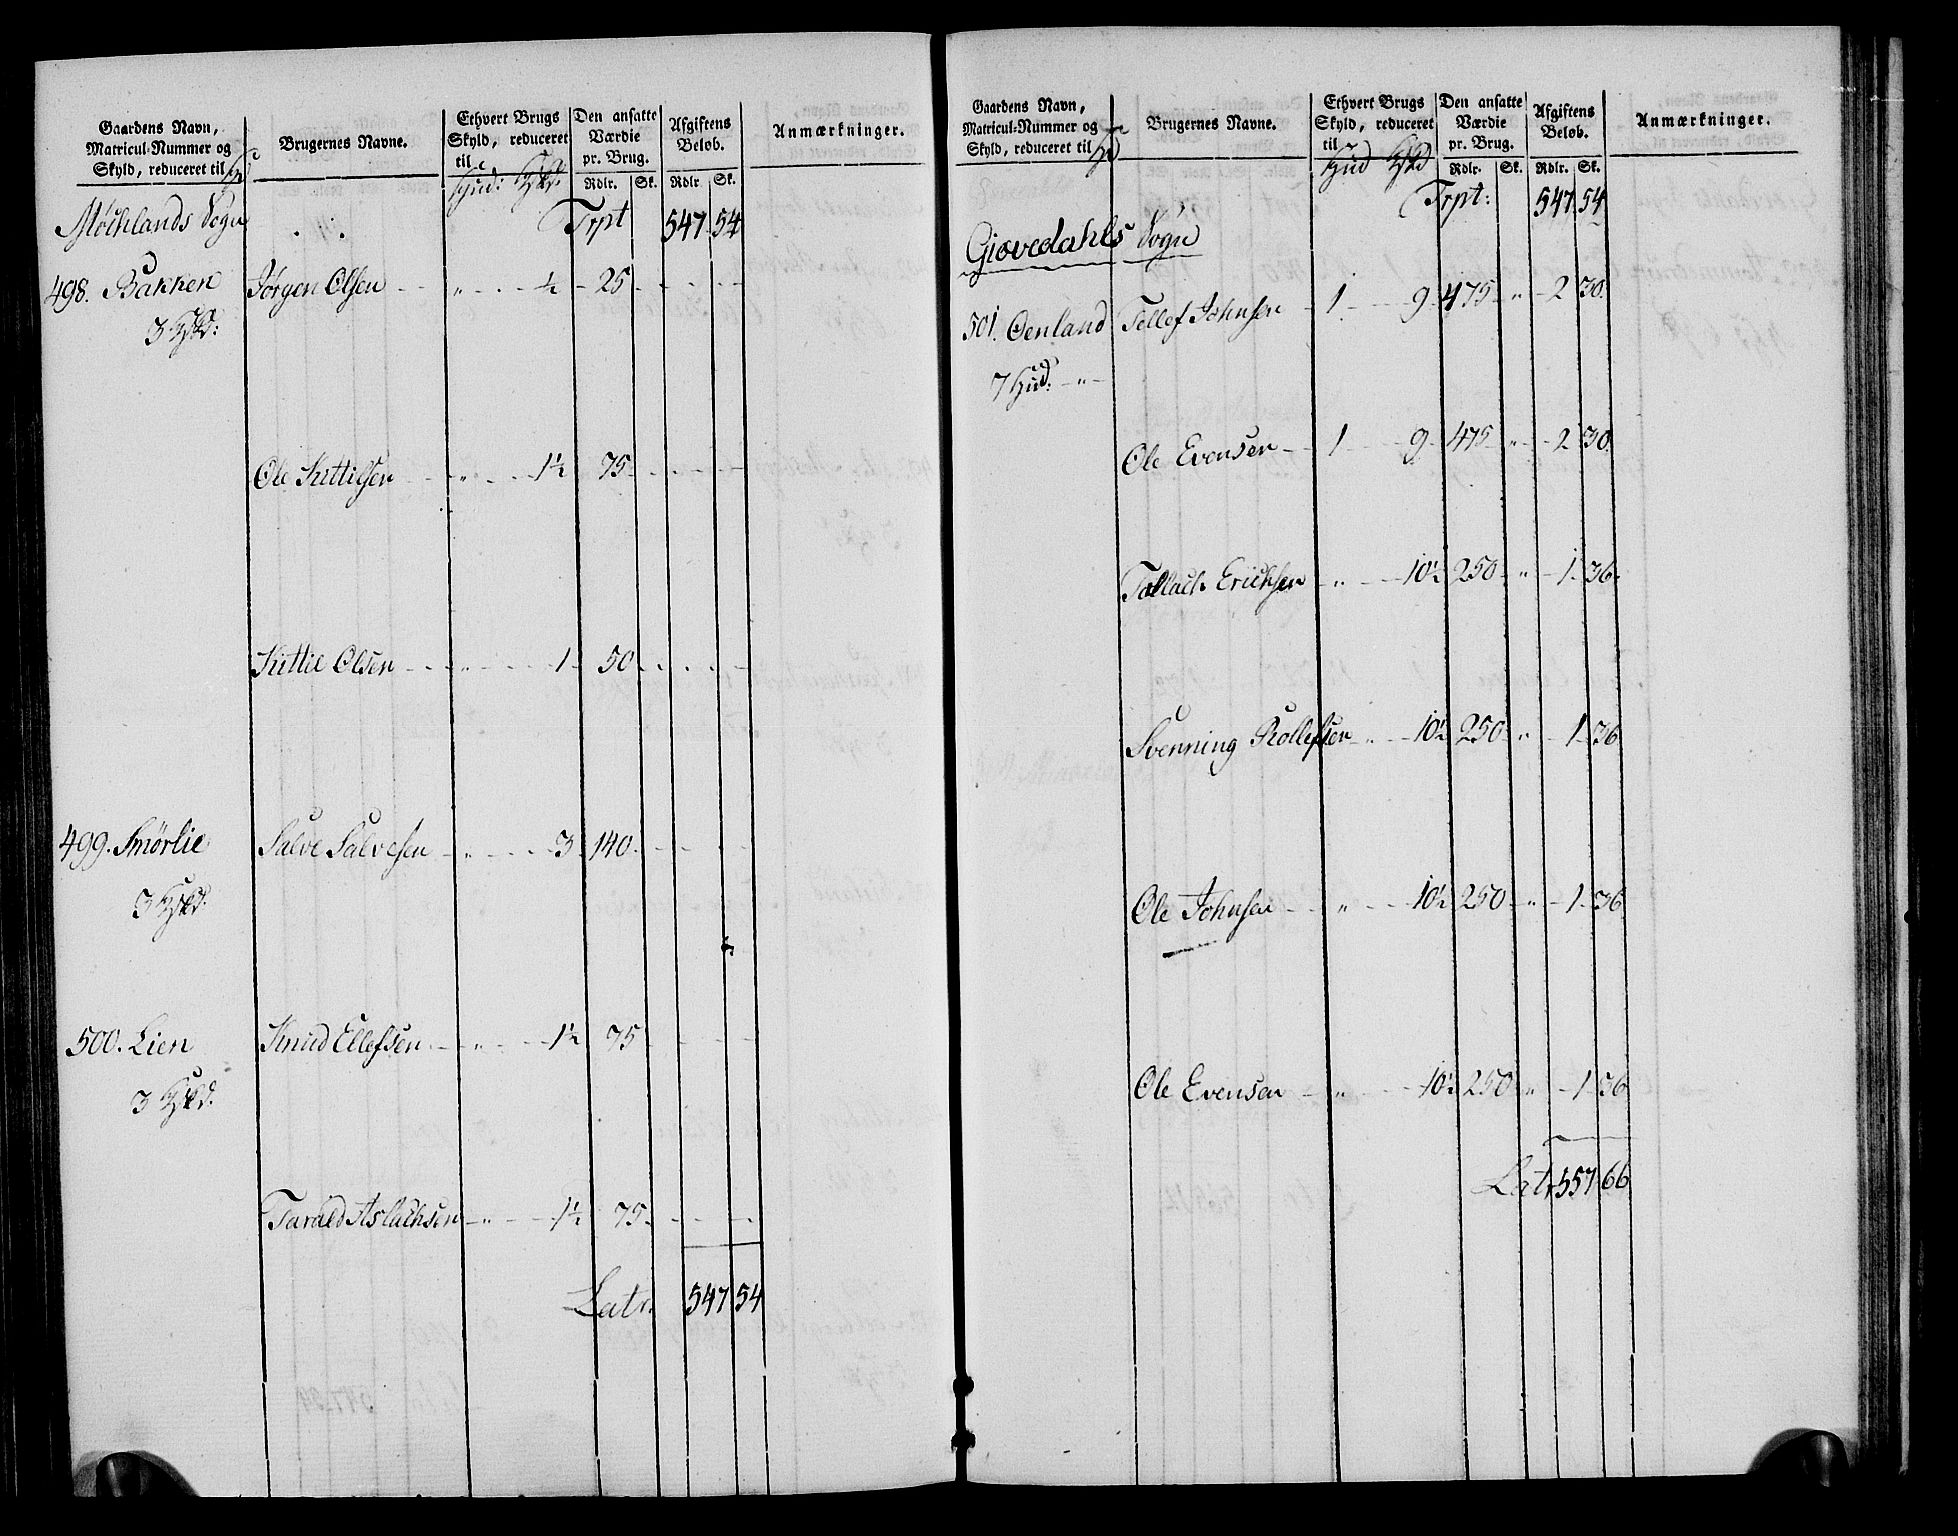 Gaardens Navn, Matricul-Nummer og Skyld, reduceret til | Brugernes Navne. | Ethvert Brugs Skyld, reduceret til Hud: Hskd: | Den ansatte Værdie pr. Brug. Rdlr. Sk. | Afgiftens Beløb. Rdlr. Sk. | Anmærkninger.
Mochlands Sogn Trpt 547 54
498. Bakken Jörgen Olsen " ½ 25
3 Hskd:
Ole Kittilsen " 1½ 75
Kittil Olsen " 1 50
499. Smörlie Salve Salvesen " 3 140
3 Hskd:
500. Lien Knud Ellefsen " 1½ 75
3 Hskd:
Tarald Aslachsen " 1½ 75
Latr. 547 54
Gaardens Navn, Matricul-Nummer og Skyld, reduceret til | Brugernes Navne. | Ethvert Brugs Skyld, reduceret til Hud Hskd | Den ansatte Værdie pr. Brug. Rdlr. Sk. | Afgiftens Beløb. Rdlr. Sk. | Anmærkninger.
Trpt: 547 54
Gjøvedahls Sogn
501. Oenland Tellef Johnsen 1 9 475 " 2 30.
7 Hud: "
Ole Evensen 1 9 475 " 2 30.
Tallach Erichsen " 10½ 250 " 1 36.
Svenning Rollefsen " 10½ 250 " 1 36
Ole Johnsen " 10½ 250 " 1 36
Ole Evensen " 10½ 250 " 1 36
Latr 557 66